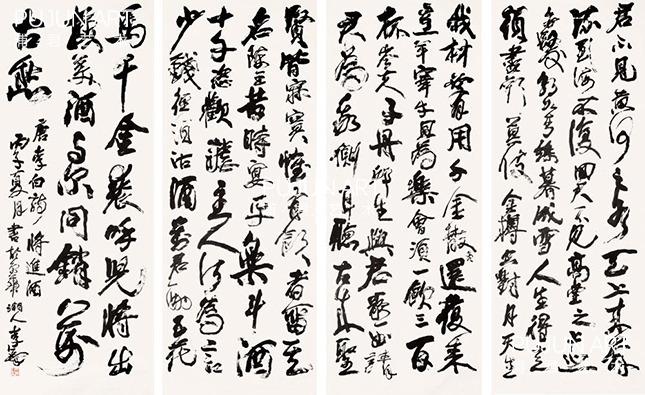 君不見黃河之水天上來奔
流到海不復回君不見高堂
朝如青絲暮成雪人生得意
須盡歡莫使金樽空對月天生
我材必有用千金散盡還復來
烹羊宰牛且為樂會須一飲三百
杯岑夫子丹邱生與君歌一曲請
君為我側耳聽古來聖
賢皆寂寞惟有飲者留其
名陳王昔時宴平樂斗酒
十千恣歡謔主人何為言
少錢徑須沽酒對君酌五花
馬千金裘呼兒將出
換美酒與爾同銷萬
古愁
唐李白詩將進酒
丙子夏月書於湘人李
PUJUN ART
PUJUN ART